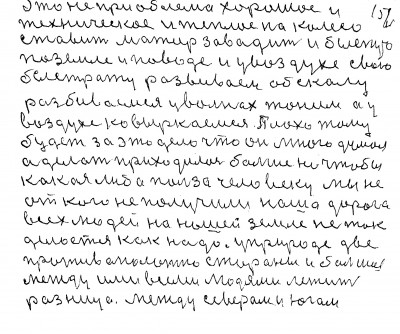 Это не проблема хорошое и 15/2
техническое и теплое на колесо
ставит матир заводит и билетую
поземле и поводе и увоздухе свою
белетрату развиваем об скалу
разбиваемся уволнах тоним а у
воздухе ковыркаемся. Плохо тому
будет за это дело что он много думал
а делат приходился болше ни чтобы
какая либа полза человеку мы не
от кого не получили наша дорога
всех людей на нашей земле не так
делается как надо. уприроде две
противаположно стирани и болшие
между ими всеми людями лежит
разница. между северам и югам